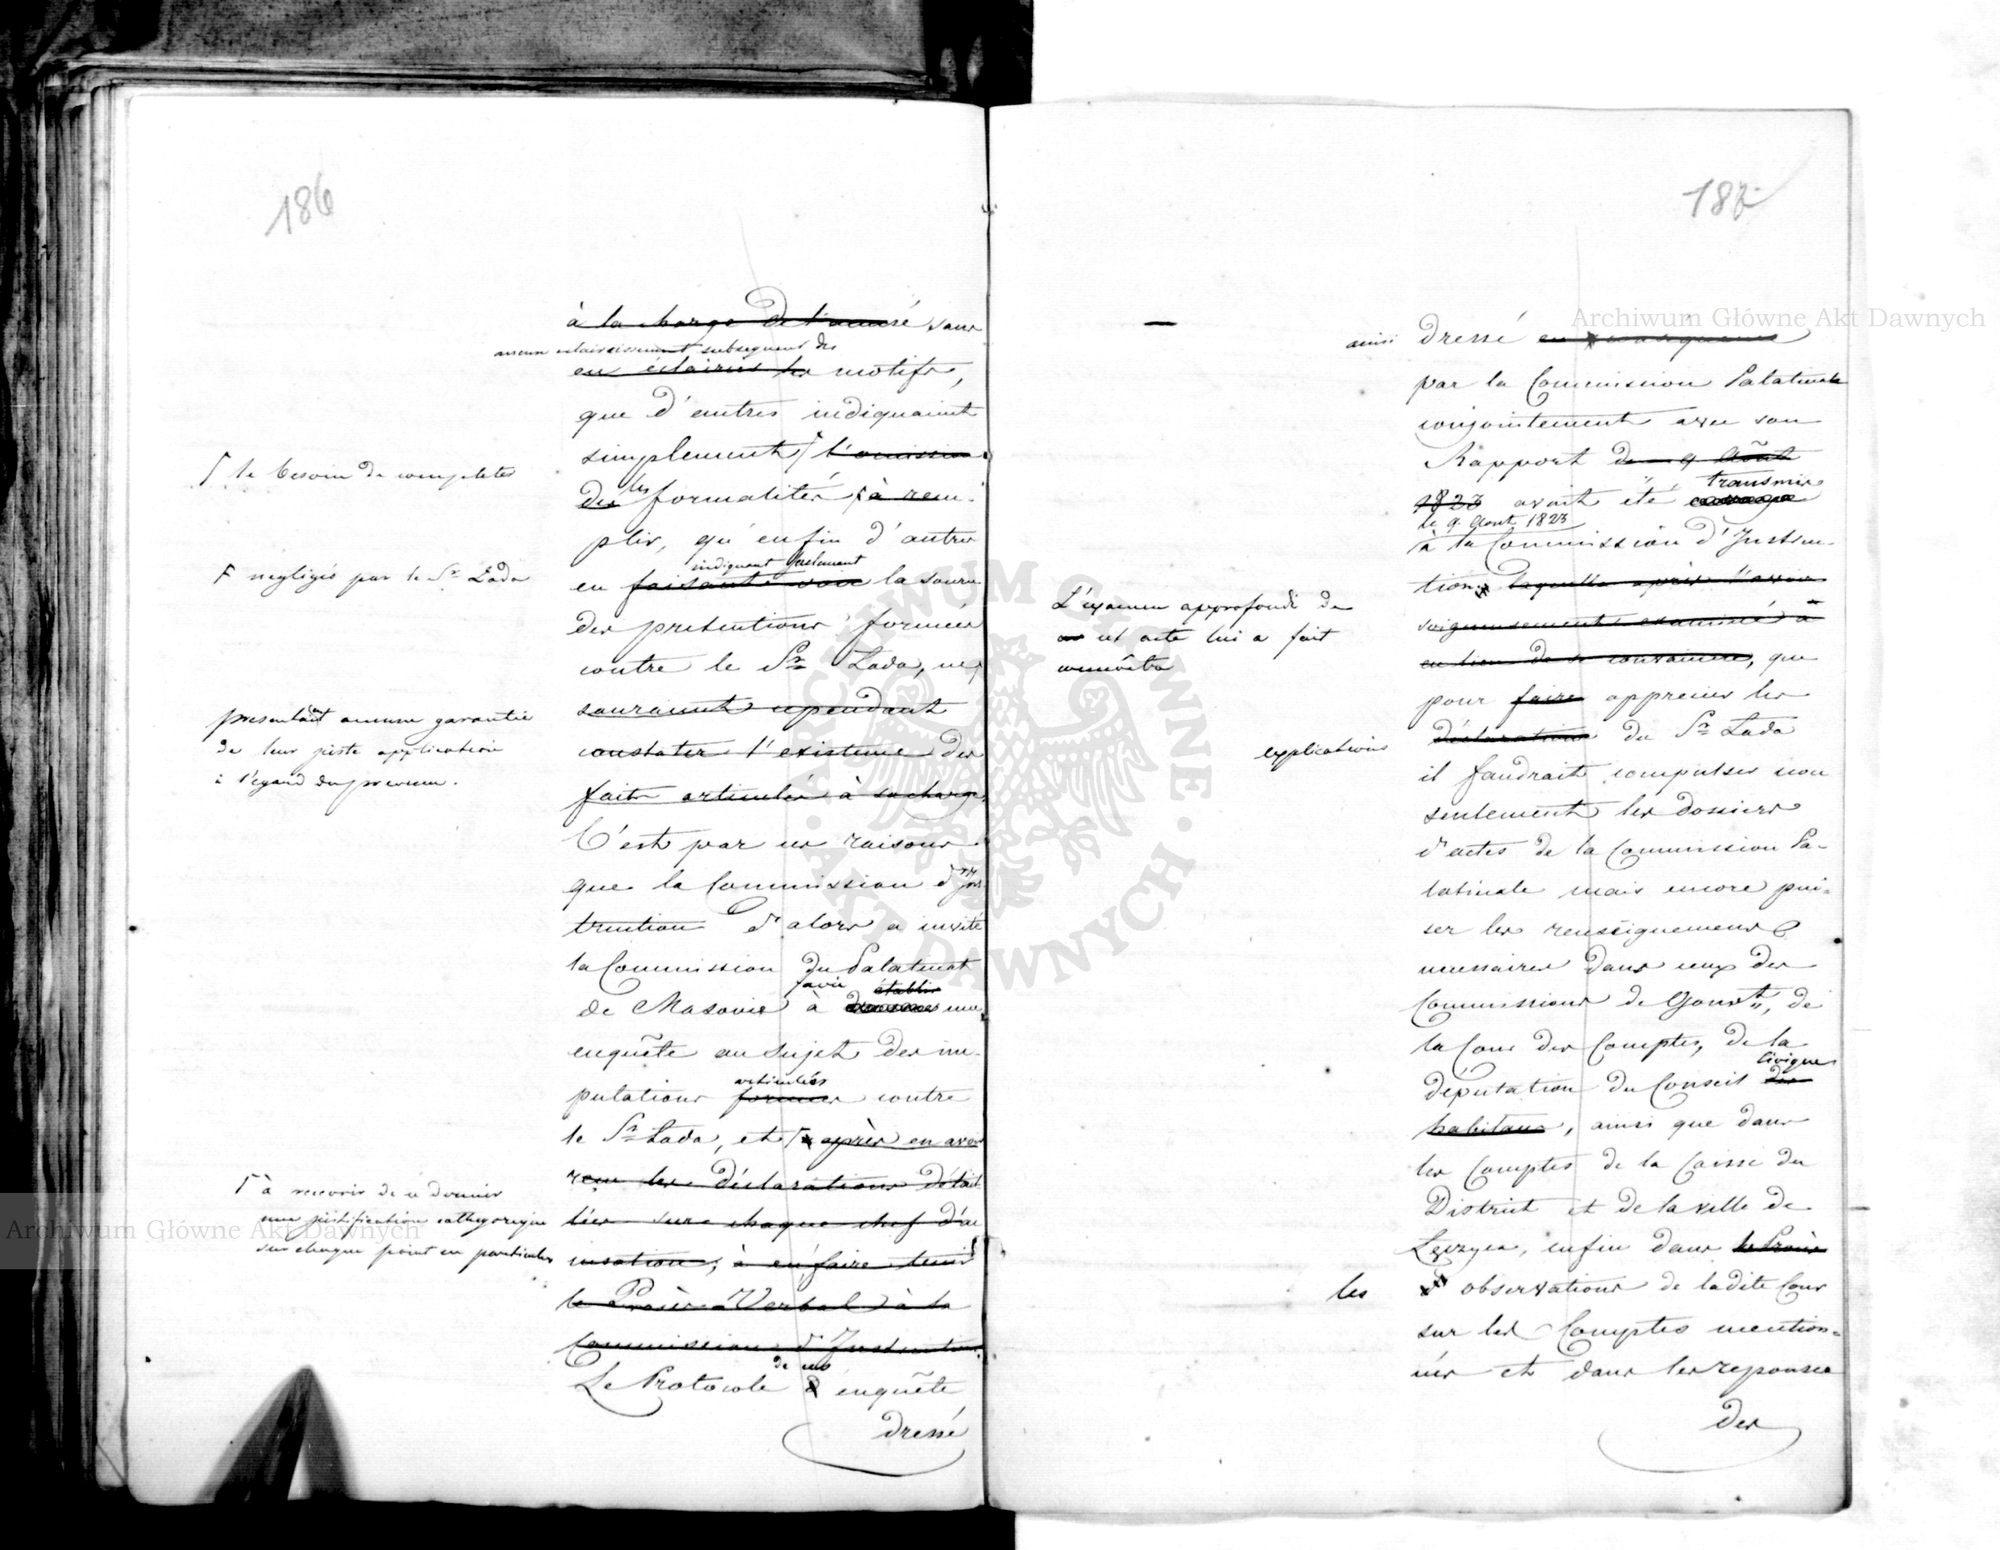 186
à la charge de l'accusé sans
aucun eclaircissement subsequent des
en éclaircir les motifs,
que d'autres indiquaient
simplement l'omission
Γ le besoin de completer
des les formalités Γ à rem-
plir, qu'enfin d'autres
indiquent seulement
Γ negligés par le Sr Lada
en faisant voir la source
des pretentions formées
contre le Sr Lada, ne
sauraient cependant
presentant aucune garantie
de leur juste application
à l'egard du prevenu.
constater l'existence des
faits articulés à sa charge.
C'est par ces raisons
que la Commission d'Ins-
truction d'alors a invité
la Commission du Palatinat
faire établir
de Masovie à une
enquête au sujet des im-
articulées
putations formées contre
le Sr Lada, et Γ après en avoir
reçu les déclarations détail
Γ à recevoir de ce dernier
une justification cathegorique
sur chaque point en particulier
lées sur chaque chef d'ac
cusation, à en faire tenir
le Procès-Verbal à la
Commission d'Instruction
de cette
Le Protocole d' enquête
dressé
187
ainsi dressé en consequence
par la Commission Palatinale
conjointement avec son
Rapport du 9 Août
transmis
1823 avait été
le 9. Aout 1823
à la Commission d'Instruc-
tion laquelle après l'avoir
L'examen approfondi de
cet acte lui a fait
connôitre
soigneusement examiné a
eu lieu de se convaincre, que
pour faire apprecier les
explications
déclarations du Sr Lada
il faudrait compulser non
seulement les dossiers
d'actes de la Commission Pa-
latinale mais encore pui-
ser les renseignemens
necessaires dans ceux des
Commissions de Gouvt, de
la Cour des Comptes, de la
Civique
députation du Conseil des
habitans, ainsi que dans
les Comptes de la Caisse du
District et de la ville de
Łęczyca, enfin dans le Procès
les observations de ladite Cour
sur les Comptes mention-
nés et dans les reponses
des
Archiwum Główne Akt Dawnych
Archiwum Główne Akt Dawnych
ARCHIWUM GŁÓWNE · AKT DAWNYCH ·